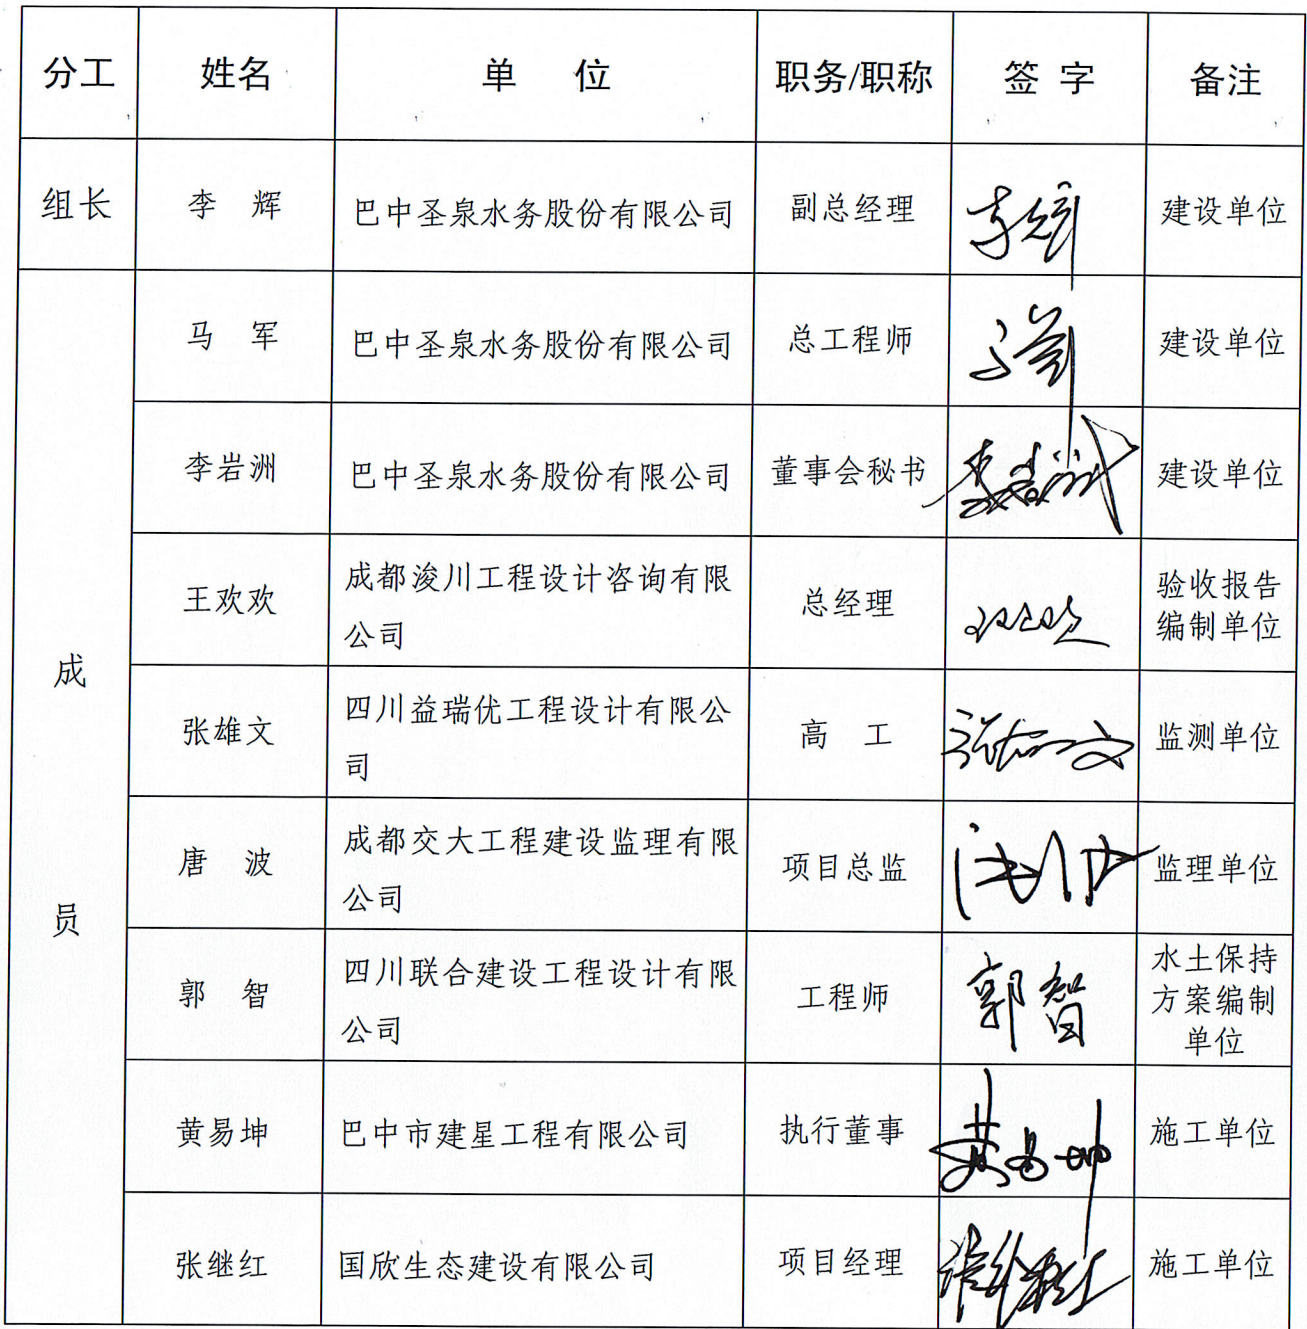 分工 姓名 单 位 职务/职称 签 字 备注
组长 李 辉 巴中圣泉水务股份有限公司 副总经理 李辉 建设单位
成
员
马 军 巴中圣泉水务股份有限公司 总工程师 马军 建设单位
李岩洲 巴中圣泉水务股份有限公司 董事会秘书 李岩洲 建设单位
王欢欢 成都浚川工程设计咨询有限
公司 总经理 验收报告
编制单位
张雄文 四川益瑞优工程设计有限公
司 高 工 张雄文 监测单位
唐 波 成都交大工程建设监理有限
公司 项目总监 监理单位
郭 智 四川联合建设工程设计有限
公司 工程师 郭智 水土保持
方案编制
单位
黄易坤 巴中市建星工程有限公司 执行董事 黄易坤 施工单位
张继红 国欣生态建设有限公司 项目经理 施工单位